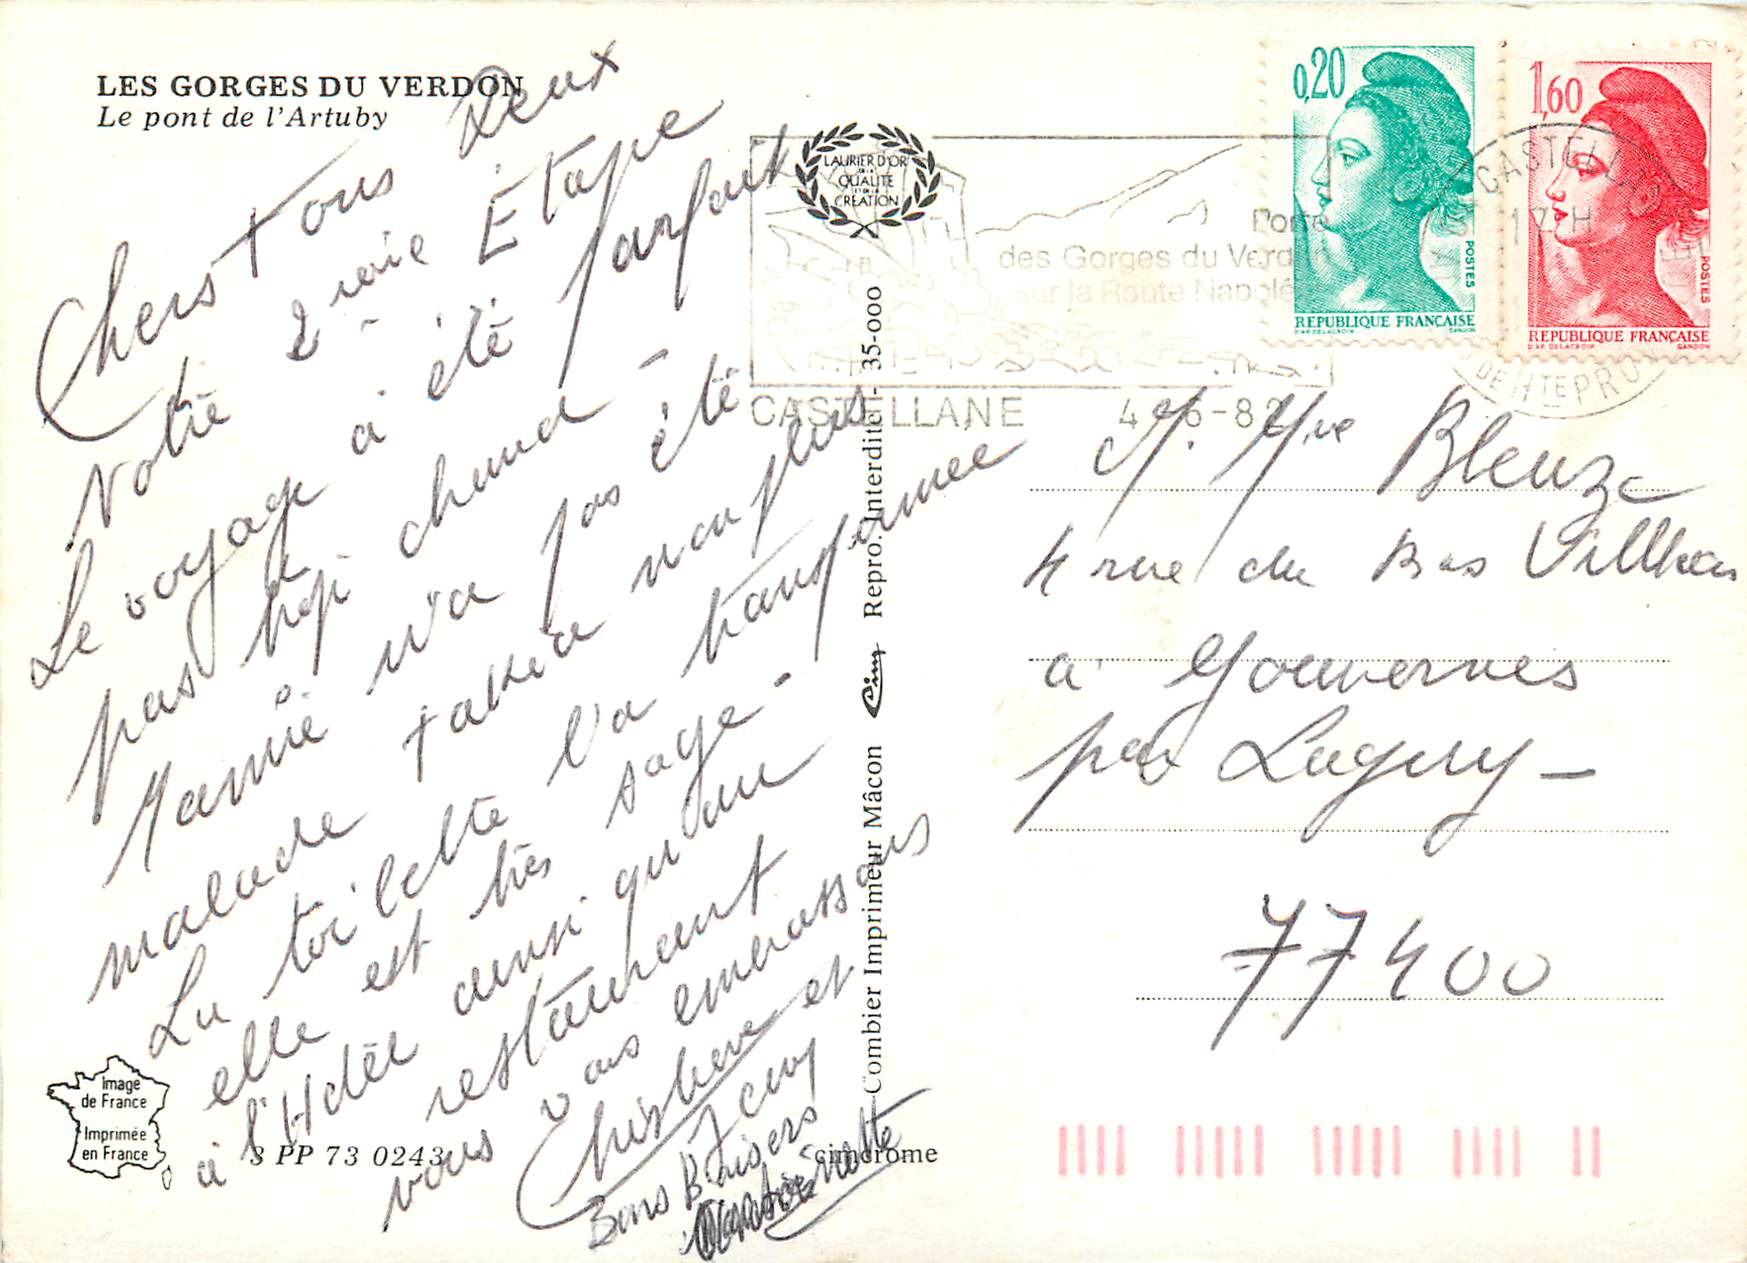 LES GORGES DU VERDON
Le pont de l'Artuby
Chers Tous Deux
Notre 2 ième Etape
Le voyage a été parfait
pas trop chaud -
Mamie n'a pas été
malade Tabéa non plus
La toilette l'a transformée
elle est très sage -
à l'Hôtel ainsi qu'au
restaurant
vous embrassons
et
Jeny
Bons Baisers
LAURIER D'OR
DE LA
QUALITE
ET DE LA
CREATION
Porte
des Gorges du Verdon
sur la Route Napoléon
CASTELLANE
0,20
POSTES
REPUBLIQUE FRANÇAISE
D'AP. DELACROIX GANDON
1,60
POSTES
REPUBLIQUE FRANÇAISE
D'AP. DELACROIX GANDON
CASTELLANE
17 H
DE HTE PRO
Combier Imprimeur Mâcon Cim Repro. Interdite - 35-000
M. Mme Bleuze
4 rue du Bas Villiers
à Gouvernes
par Lagny -
77400
Image
de France
Imprimée
en France
3 PP 73 0243
cimcrome